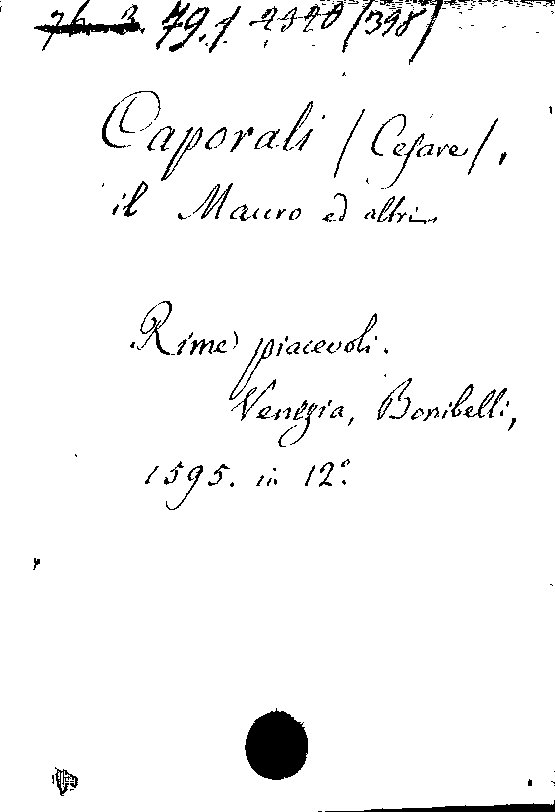 79.1 2320 (398)
Caporali (Cesare),
il Mauro ed altri
Rime piacevoli.
Venezia, Bonibelli,
1595. in 12º.